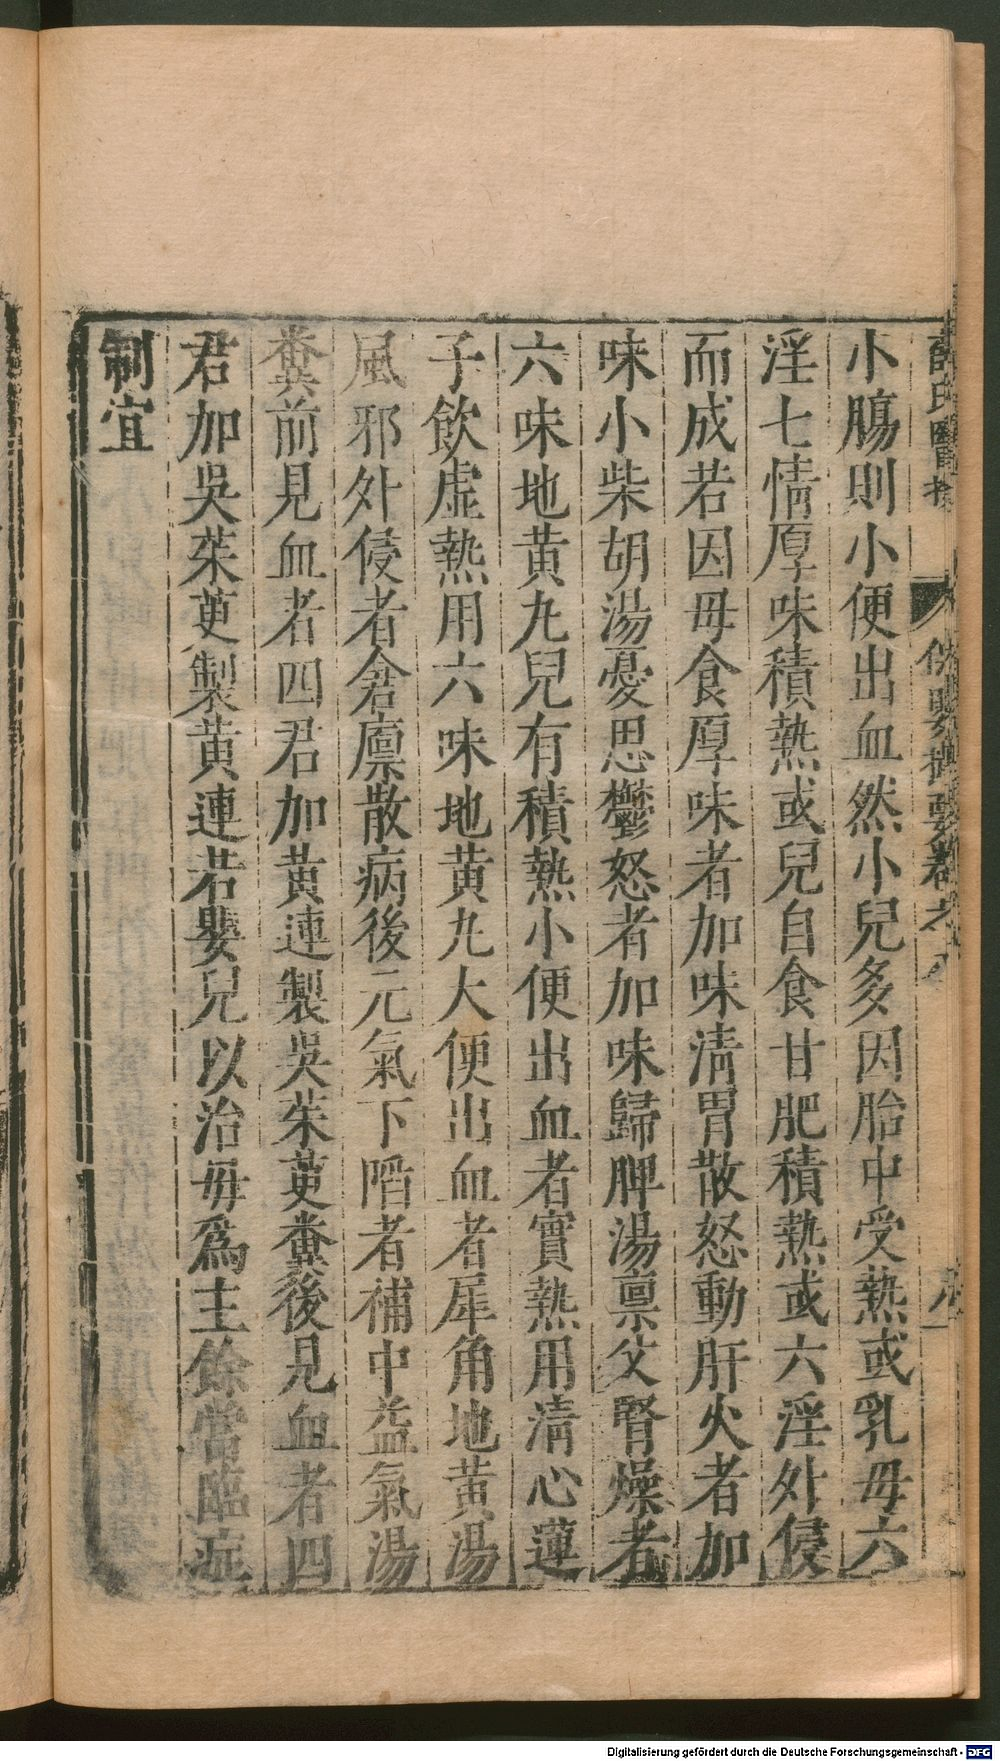 薛氏醫按 保嬰撮要卷之八
小腸則小便出血然小兒多因胎中受熱或乳母六
淫七情厚味積熱或兒自食甘肥積熱或六淫外侵
而成若因母食厚味者加味清胃散怒動肝火者加
味小柴胡湯憂思鬱怒者加味歸脾湯禀父腎燥者
六味地黄丸兒有積熱小便出血者實熱用清心蓮
子飲虚熱用六味地黄丸大便出血者犀角地黄湯
風邪外侵者倉廪散病後元氣下陷者補中益氣湯
糞前見血者四君加黄連製吳茱萸糞後見血者四
君加吳茱萸製黄連若嬰兒以治母爲主餘當臨症
制宜
Digitalisierung gefördert durch die Deutsche Forschungsgemeinschaft - DFG